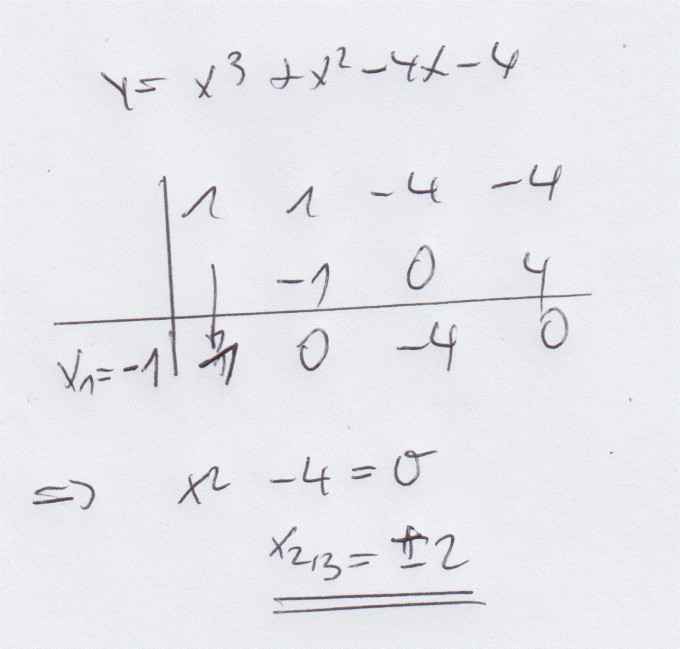 y = x³ + x² - 4x - 4
1 1 -4 -4
↓ -1 0 4
x₁ = -1 1 0 -4 0
⇒ x² - 4 = 0
x₂,₃ = ± 2